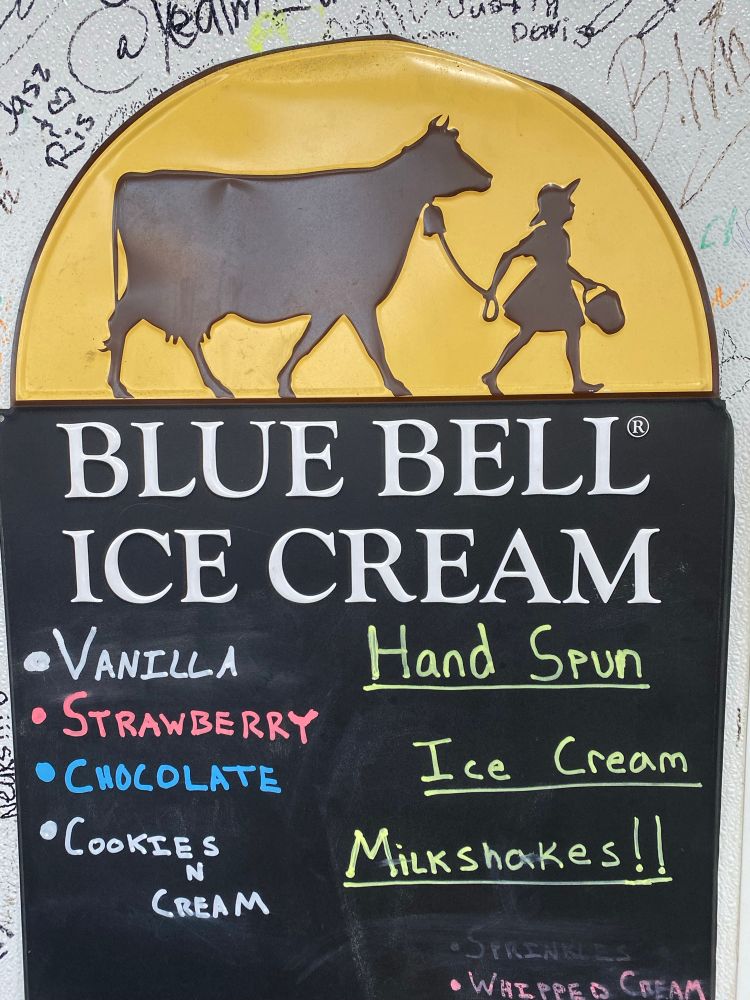 Justin
Davis
Jasz
Ris
BLUE BELL®
ICE CREAM
• VANILLA
• STRAWBERRY
• CHOCOLATE
• COOKIES
N
CREAM
Hand Spun
Ice Cream
Milkshakes!!
• SPRINKLES
• WHIPPED CREAM